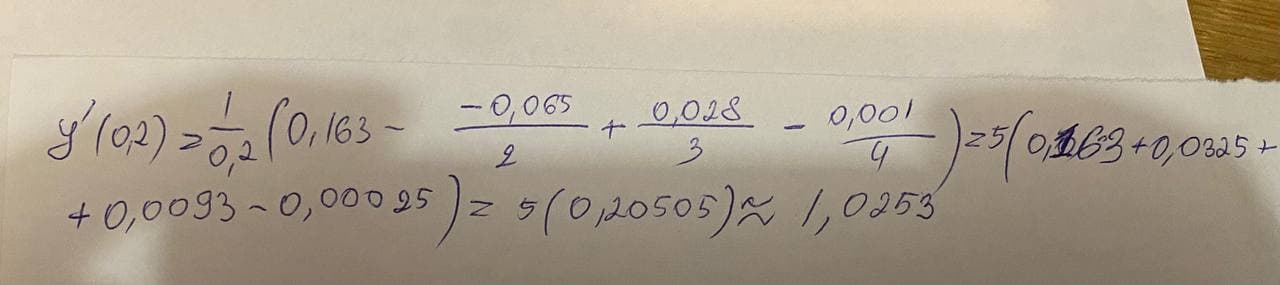 y'(0,2) = \frac{1}{0,2} (0,163 - \frac{-0,065}{2} + \frac{0,028}{3} - \frac{0,001}{4}) = 5(0,163 + 0,0325 +
+ 0,0093 - 0,00025) = 5(0,20505) ≈ 1,0253